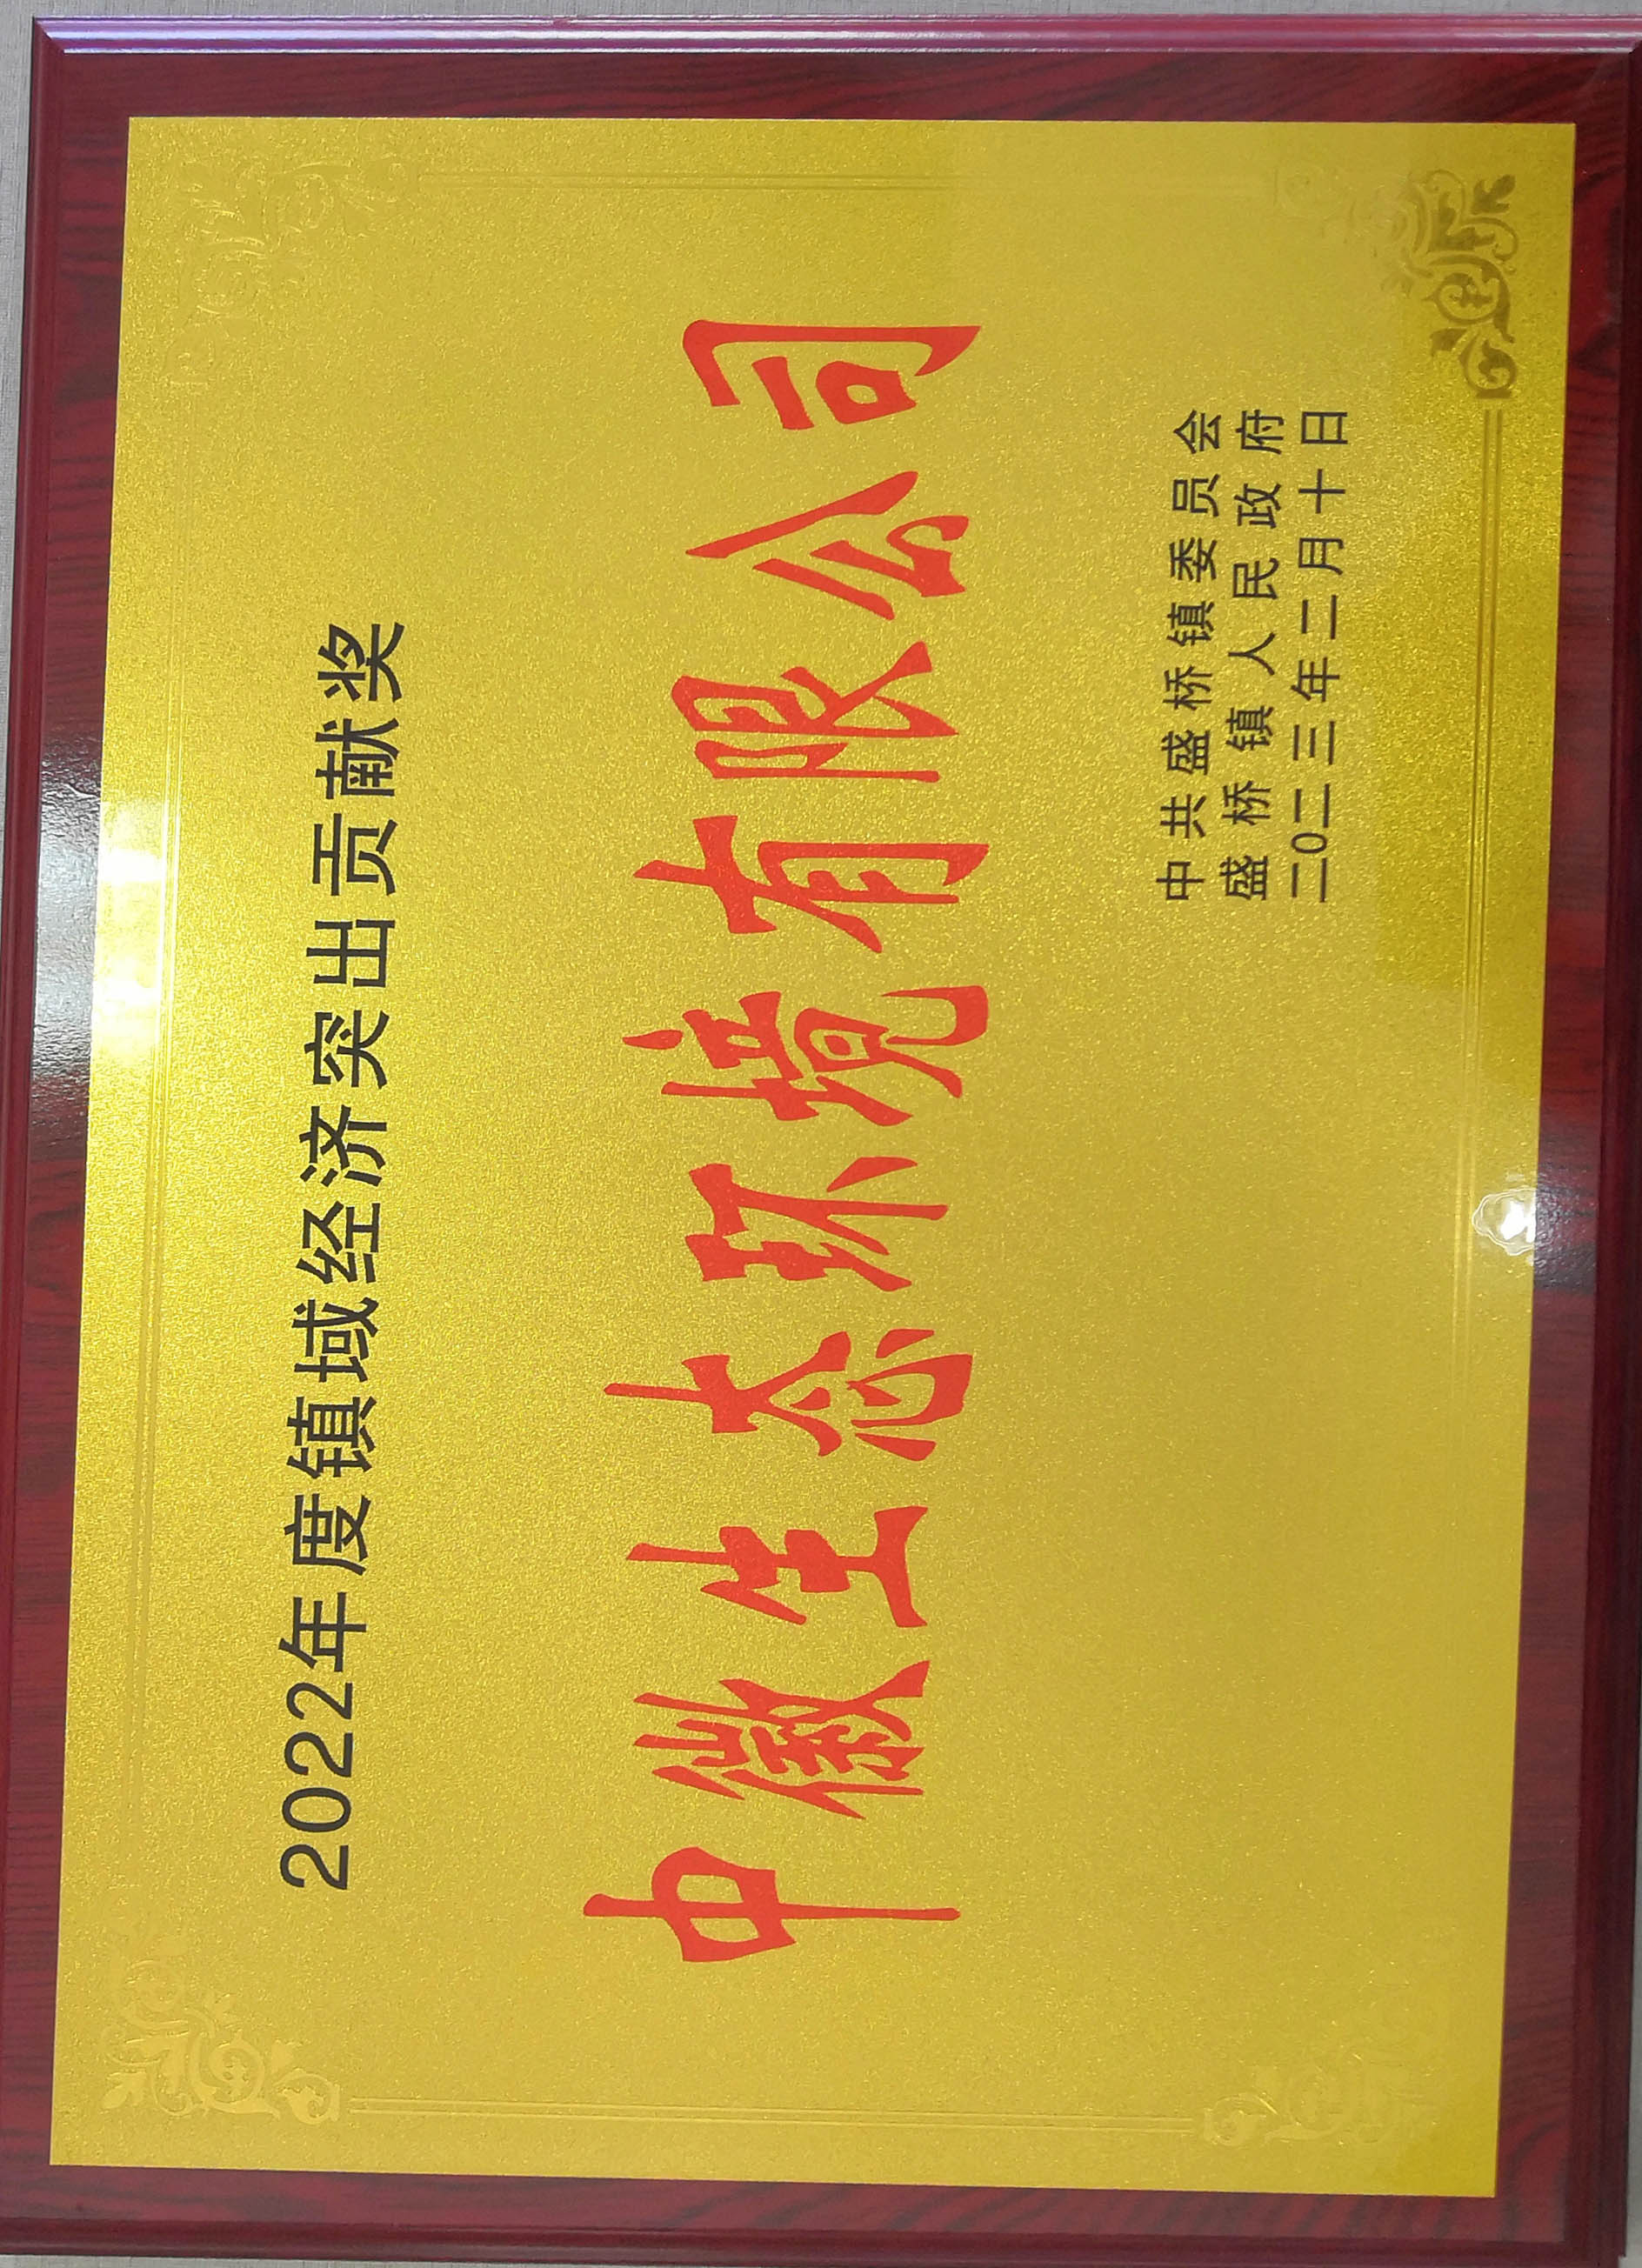 2022年度镇域经济突出贡献奖
中徽生态环境有限公司
中共盛桥镇委员会
盛桥镇人民政府
二0二三年二月十日